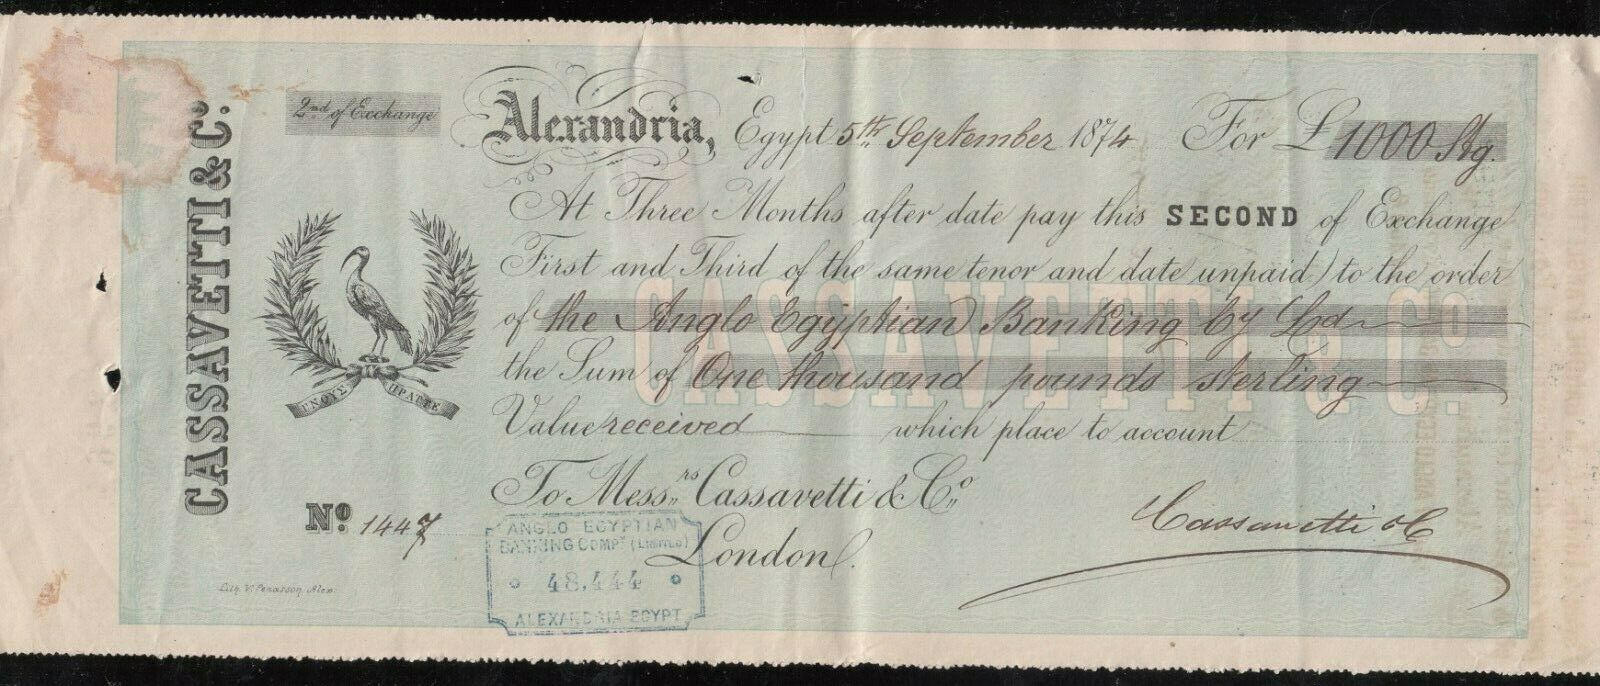 CASSAVETTI & Cº.
2nd of Exchange
Alexandria, Egypt 5th September 1874 For £ 1000 Stg.
At Three Months after date pay this SECOND of Exchange
First and Third of the same tenor and date unpaid) to the order
of the Anglo Egyptian Banking Cy Ld
the Sum of One thousand pounds sterling
CASSAVETTI & Cº.
Value received which place to account
To Messrs Cassavetti & Cº
London.
Cassavetti & C
ΠΡΑΤΤΕ
Nº 1447
ANGLO EGYPTIAN
BANKING COMPY (LIMITED)
48,444
ALEXANDRIA EGYPT
Lith. V. Penasson, Alex.